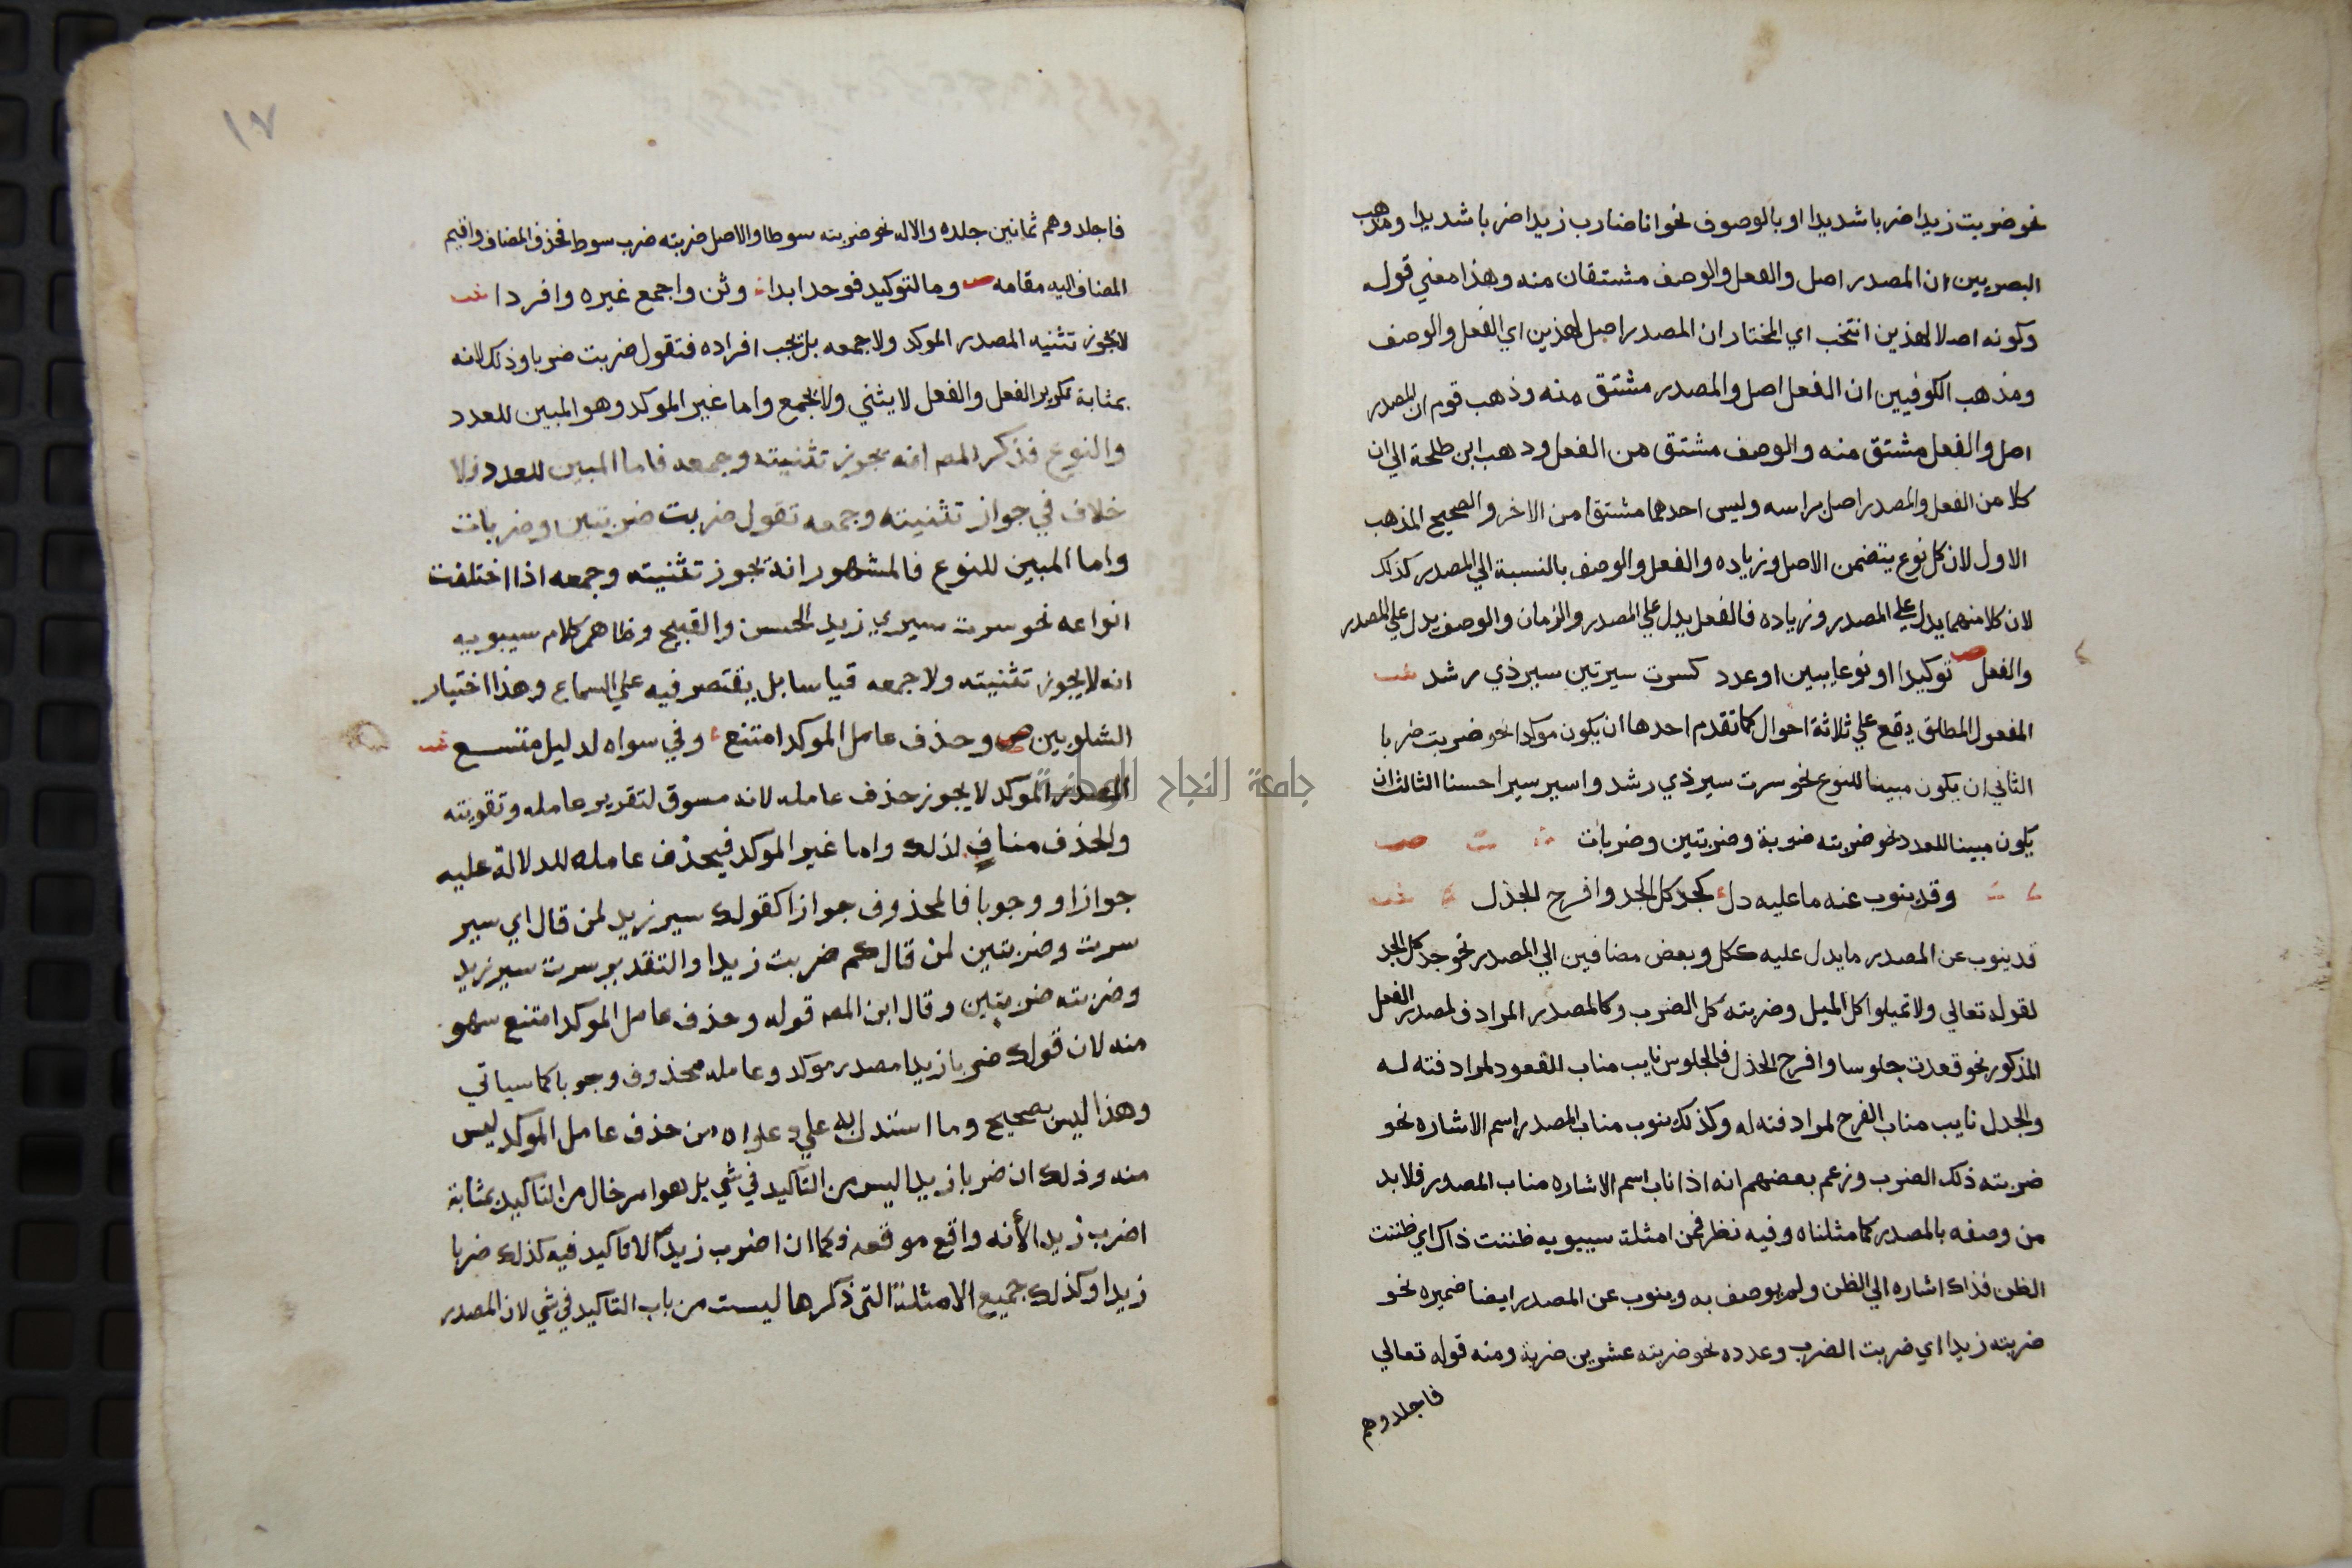 نحو ضربت زيدا ضربا شديدا او بالوصوف نحو انا ضارب زيدا ضربا شديدا ومذهب
البصريين ان المصدر اصل والفعل والوصف مشتقان منه وهذا معني قوله
وكونه اصلا لهذين انتخب اي المختار ان المصدر اصل لهذين اي الفعل والوصف
ومذهب الكوفيين ان الفعل اصل والمصدر مشتق منه وذهب قوم ان المصدر
اصل والفعل مشتق منه والوصف مشتق من الفعل ودهب ابن طلحة الي ان
كلا من الفعل والمصدر اصل براسه وليس احدهما مشتقا من الاخر والصحيح المذهب
الاول لان كل نوع يتضمن الاصل وزياده والفعل والوصف بالنسبة الي المصدر كذلك
لان كلا منهما يدل علي المصدر وزياده فالفعل يدل علي المصدر والزمان والوصف يدل علي المصدر
والفعل ص توكيدا او نوعا يبين او عدد كسرت سيرتين سير ذي رشد
المفعول المطلق يقع علي ثلاثة احوال كما تقدم احدها ان يكون موكدا نحو ضربت ضربا
الثاني ان يكون مبينا للنوع نحو سرت سير ذي رشد واسير سيرا حسنا الثالث ان
يكون مبينا للعدد نحو ضربته ضربة وضربتين وضربات ص
وقد ينوب عنه ما عليه دل كجد كل الجد وافرح الجذل
قد ينوب عن المصدر ما يدل عليه ككل وبعض مضافين الي المصدر نحو جد كل الجد
لقوله تعالي ولا تميلوا كل الميل وضربته كل الضرب وكالمصدر المرادف لمصدر الفعل
المذكور نحو قعدت جلوسا وافرح الجذل فالجلوس نايب مناب القعود لمرادفته له
والجدل نايب مناب الفرح لمرادفته له وكذلك ينوب مناب المصدر اسم الاشاره نحو
ضربته ذلك الضرب وزعم بعضهم انه اذا ناب اسم الاشاره مناب المصدر فلابد
من وصفه بالمصدر كما مثلناه وفيه نظر فمن امثلة سيبويه ظننت ذاك اي ظننت
الظن فذاك اشاره الي الظن ولم يوصف به وينوب عن المصدر ايضا ضميره نحو
ضربته زيدا اي ضربت الضرب وعدده نحو ضربته عشرين ضربة ومنه قوله تعالي
فاجلدوهم
١٧
فاجلدوهم ثمانين جلده والاله نحو ضربته سوطا والاصل ضربته ضرب سوط فحذف المضاف واقيم
المضاف اليه مقامه ص وما لتوكيد فوحد ابدا وثن واجمع غيره وافردا
لا يجوز تثنيه المصدر الموكد ولا جمعه بل يجب افراده فتقول ضربت ضربا وذلك لانه
بمثابة تكرير الفعل والفعل لا يثني ولا يجمع واما غير الموكد وهو المبين للعدد
والنوع فذكر المص انه يجوز تثنيته وجمعه فاما المبين للعدد فلا
خلاف في جواز تثنيته وجمعه تقول ضربت ضربتين وضربات
واما المبين للنوع فالمشهور انه يجوز تثنيته وجمعه اذا اختلفت
انواعه نحو سرت سيري زيد الحسن والقبيح وظاهر كلام سيبويه
انه لا يجوز تثنيته ولا جمعه قياسا بل يقتصر فيه علي السماع وهذا اختيار
الشلوبين ص وحذف عامل الموكد امتنع وفي سواه لدليل متسع
المصدر الموكد لا يجوز حذف عامله لانه مسوق لتقرير عامله وتقويته
والحذف مناف لذلك واما غير الموكد فيحذف عامله للدلالة عليه
جوازا ووجوبا فالمحذوف جوازا كقولك سير زيد لمن قال اي سير
سرت وضربتين لمن قال كم ضربت زيدا والتقدير سرت سير زيد
وضربته ضربتين وقال ابن المص قوله وحذف عامل الموكد امتنع سهو
منه لان قولك ضربا زيدا مصدر موكد وعامله محذوف وجوبا كما سياتي
وهذا ليس بصحيح وما استدل به علي دعواه من حذف عامل الموكد ليس
منه وذلك ان ضربا زيدا ليس من التاكيد في شي بل هو امر خال من التاكيد بمثابة
اضرب زيدا لأنه واقع موقعه فكما ان اضرب زيدا لا تاكيد فيه كذلك ضربا
زيدا وكذلك جميع الامثلة التي ذكرها ليست من باب التاكيد في شي لان المصدر
جامعة النجاح الوطنية